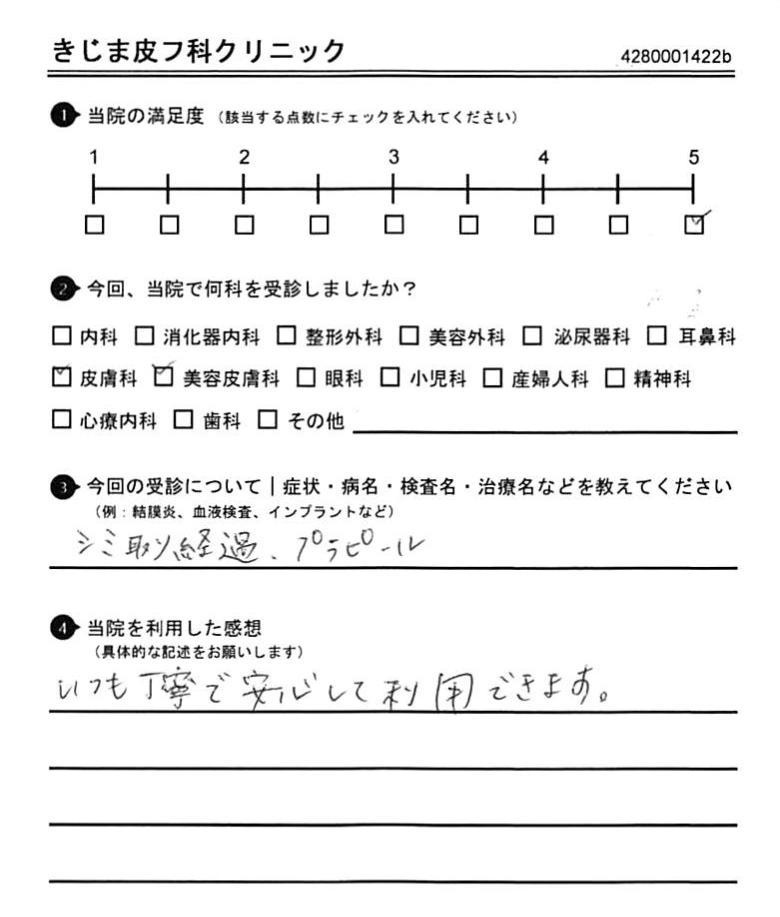 きじま皮フ科クリニック 4280001422b
1 当院の満足度 (該当する点数にチェックを入れてください)
1 2 3 4 5
□ □ □ □ □ □ □ □ ☑
2 今回、当院で何科を受診しましたか?
□ 内科 □ 消化器内科 □ 整形外科 □ 美容外科 □ 泌尿器科 □ 耳鼻科
☑ 皮膚科 ☑ 美容皮膚科 □ 眼科 □ 小児科 □ 産婦人科 □ 精神科
□ 心療内科 □ 歯科 □ その他
3 今回の受診について|症状・病名・検査名・治療名などを教えてください
(例:結膜炎、血液検査、インプラントなど)
シミ取り経過、プラピール
4 当院を利用した感想
(具体的な記述をお願いします)
いつも丁寧で安心して利用できます。